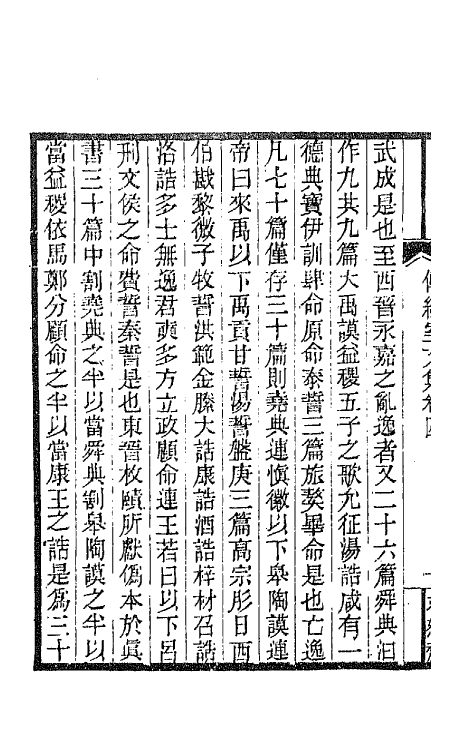 武成是也至西晉永嘉之亂逸者又二十六篇舜典汩
作九共九篇大禹謨益稷五子之歌允征湯誥咸有一
德典寶伊訓肆命原命泰誓三篇旅獒畢命是也亡逸
凡七十篇僅存三十篇則堯典連愼徽以下皋陶謨連
帝曰來禹以下禹貢甘誓湯誓盤庚三篇高宗肜日西
伯戡黎微子牧誓洪範金縢大誥康誥酒誥梓材召誥
洛誥多士無逸君奭多方立政顧命連王若曰以下呂
刑文侯之命費誓秦誓是也東晉枚賾所獻僞本於眞
書三十篇中割堯典之半以當舜典割皋陶謨之半以
當益稷依馬鄭分顧命之半以當康王之誥是爲三十